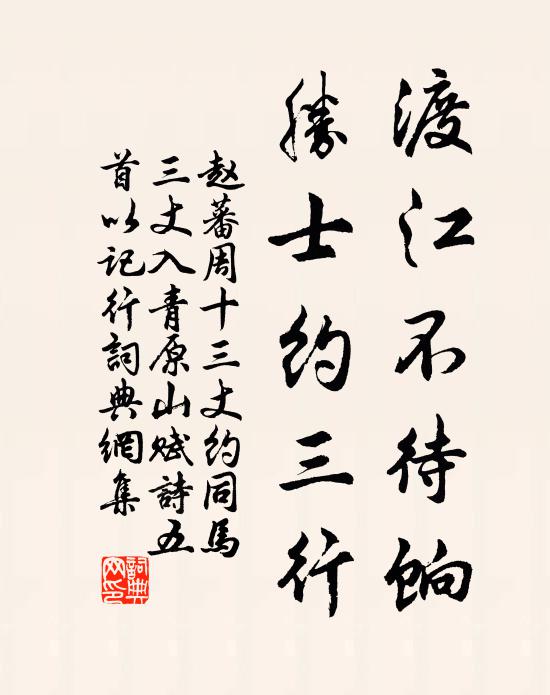 渡江不待餉
勝士约三行
赵蕃周十三丈约同馬
三丈入青原山赋詩五
首以记行詞典網集
詞典网印